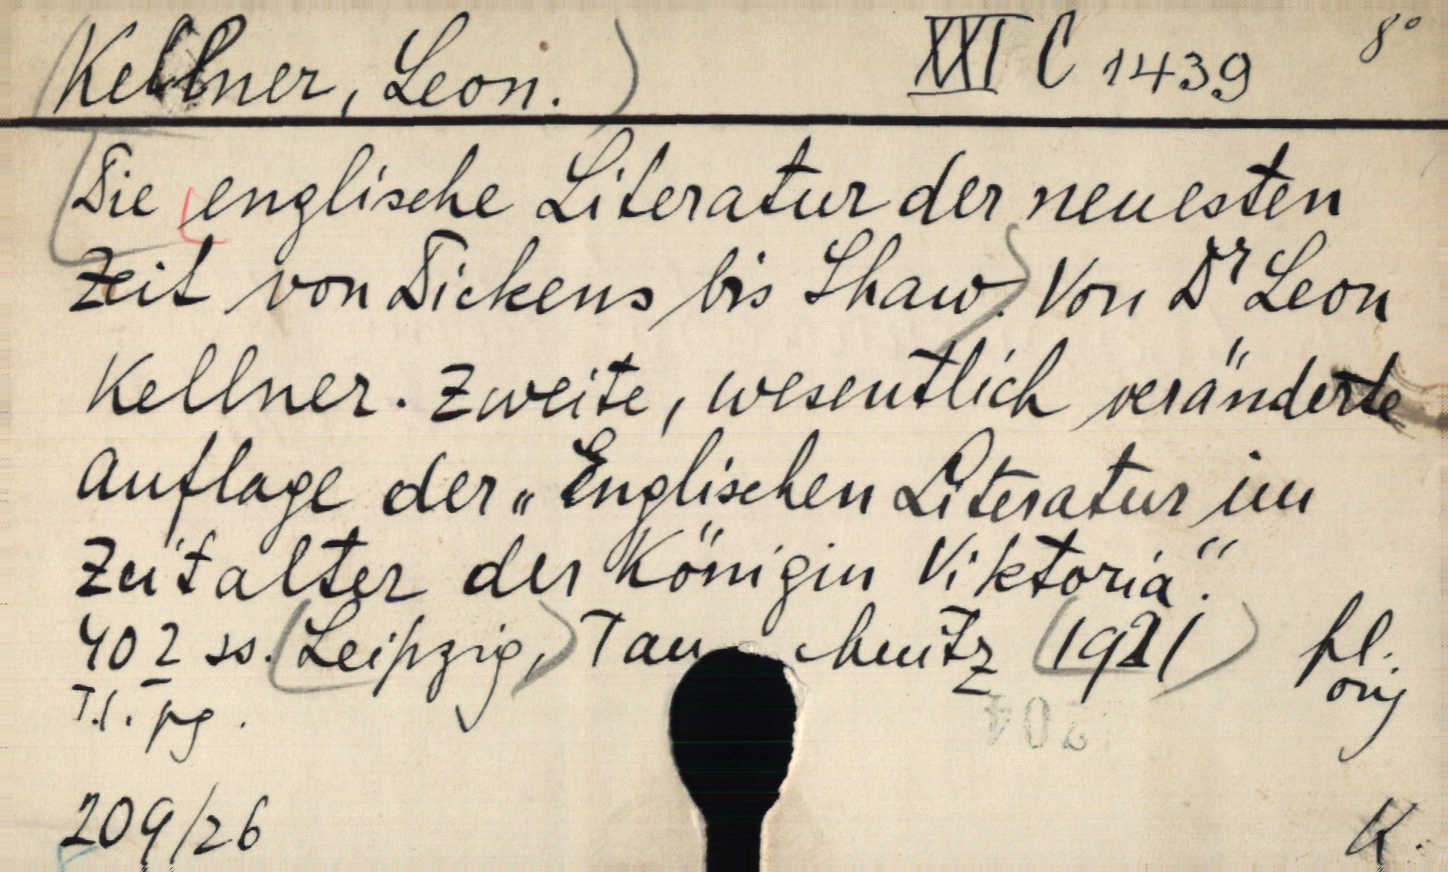 Kellner, Leon. XXI C 1439 8°
Die englische Literatur der neuesten
Zeit von Dickens bis Shaw. Von Dr Leon
Kellner. Zweite, wesentlich veränderte
Auflage der „Englischen Literatur im
Zeitalter der Königin Viktoria“.
402 ss. (Leipzig,) Tau chnitz (1921) pl.
orig
T.1. pg.
209/26 K.